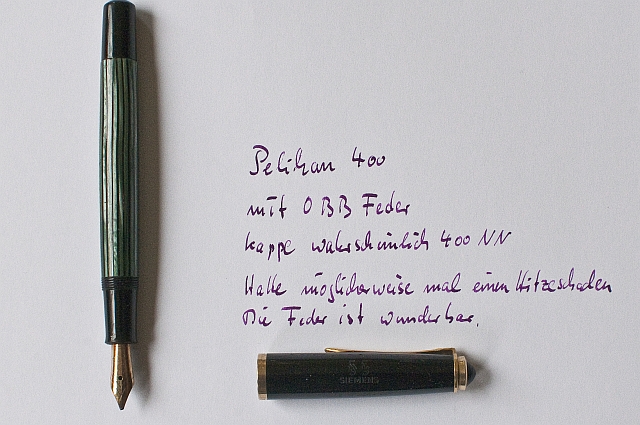 Pelikan 400
mit OBB Feder
Kappe wahrscheinlich 400 NN
Hatte möglicherweise mal einen Hitzeschaden
Die Feder ist wunderbar.
SIEMENS